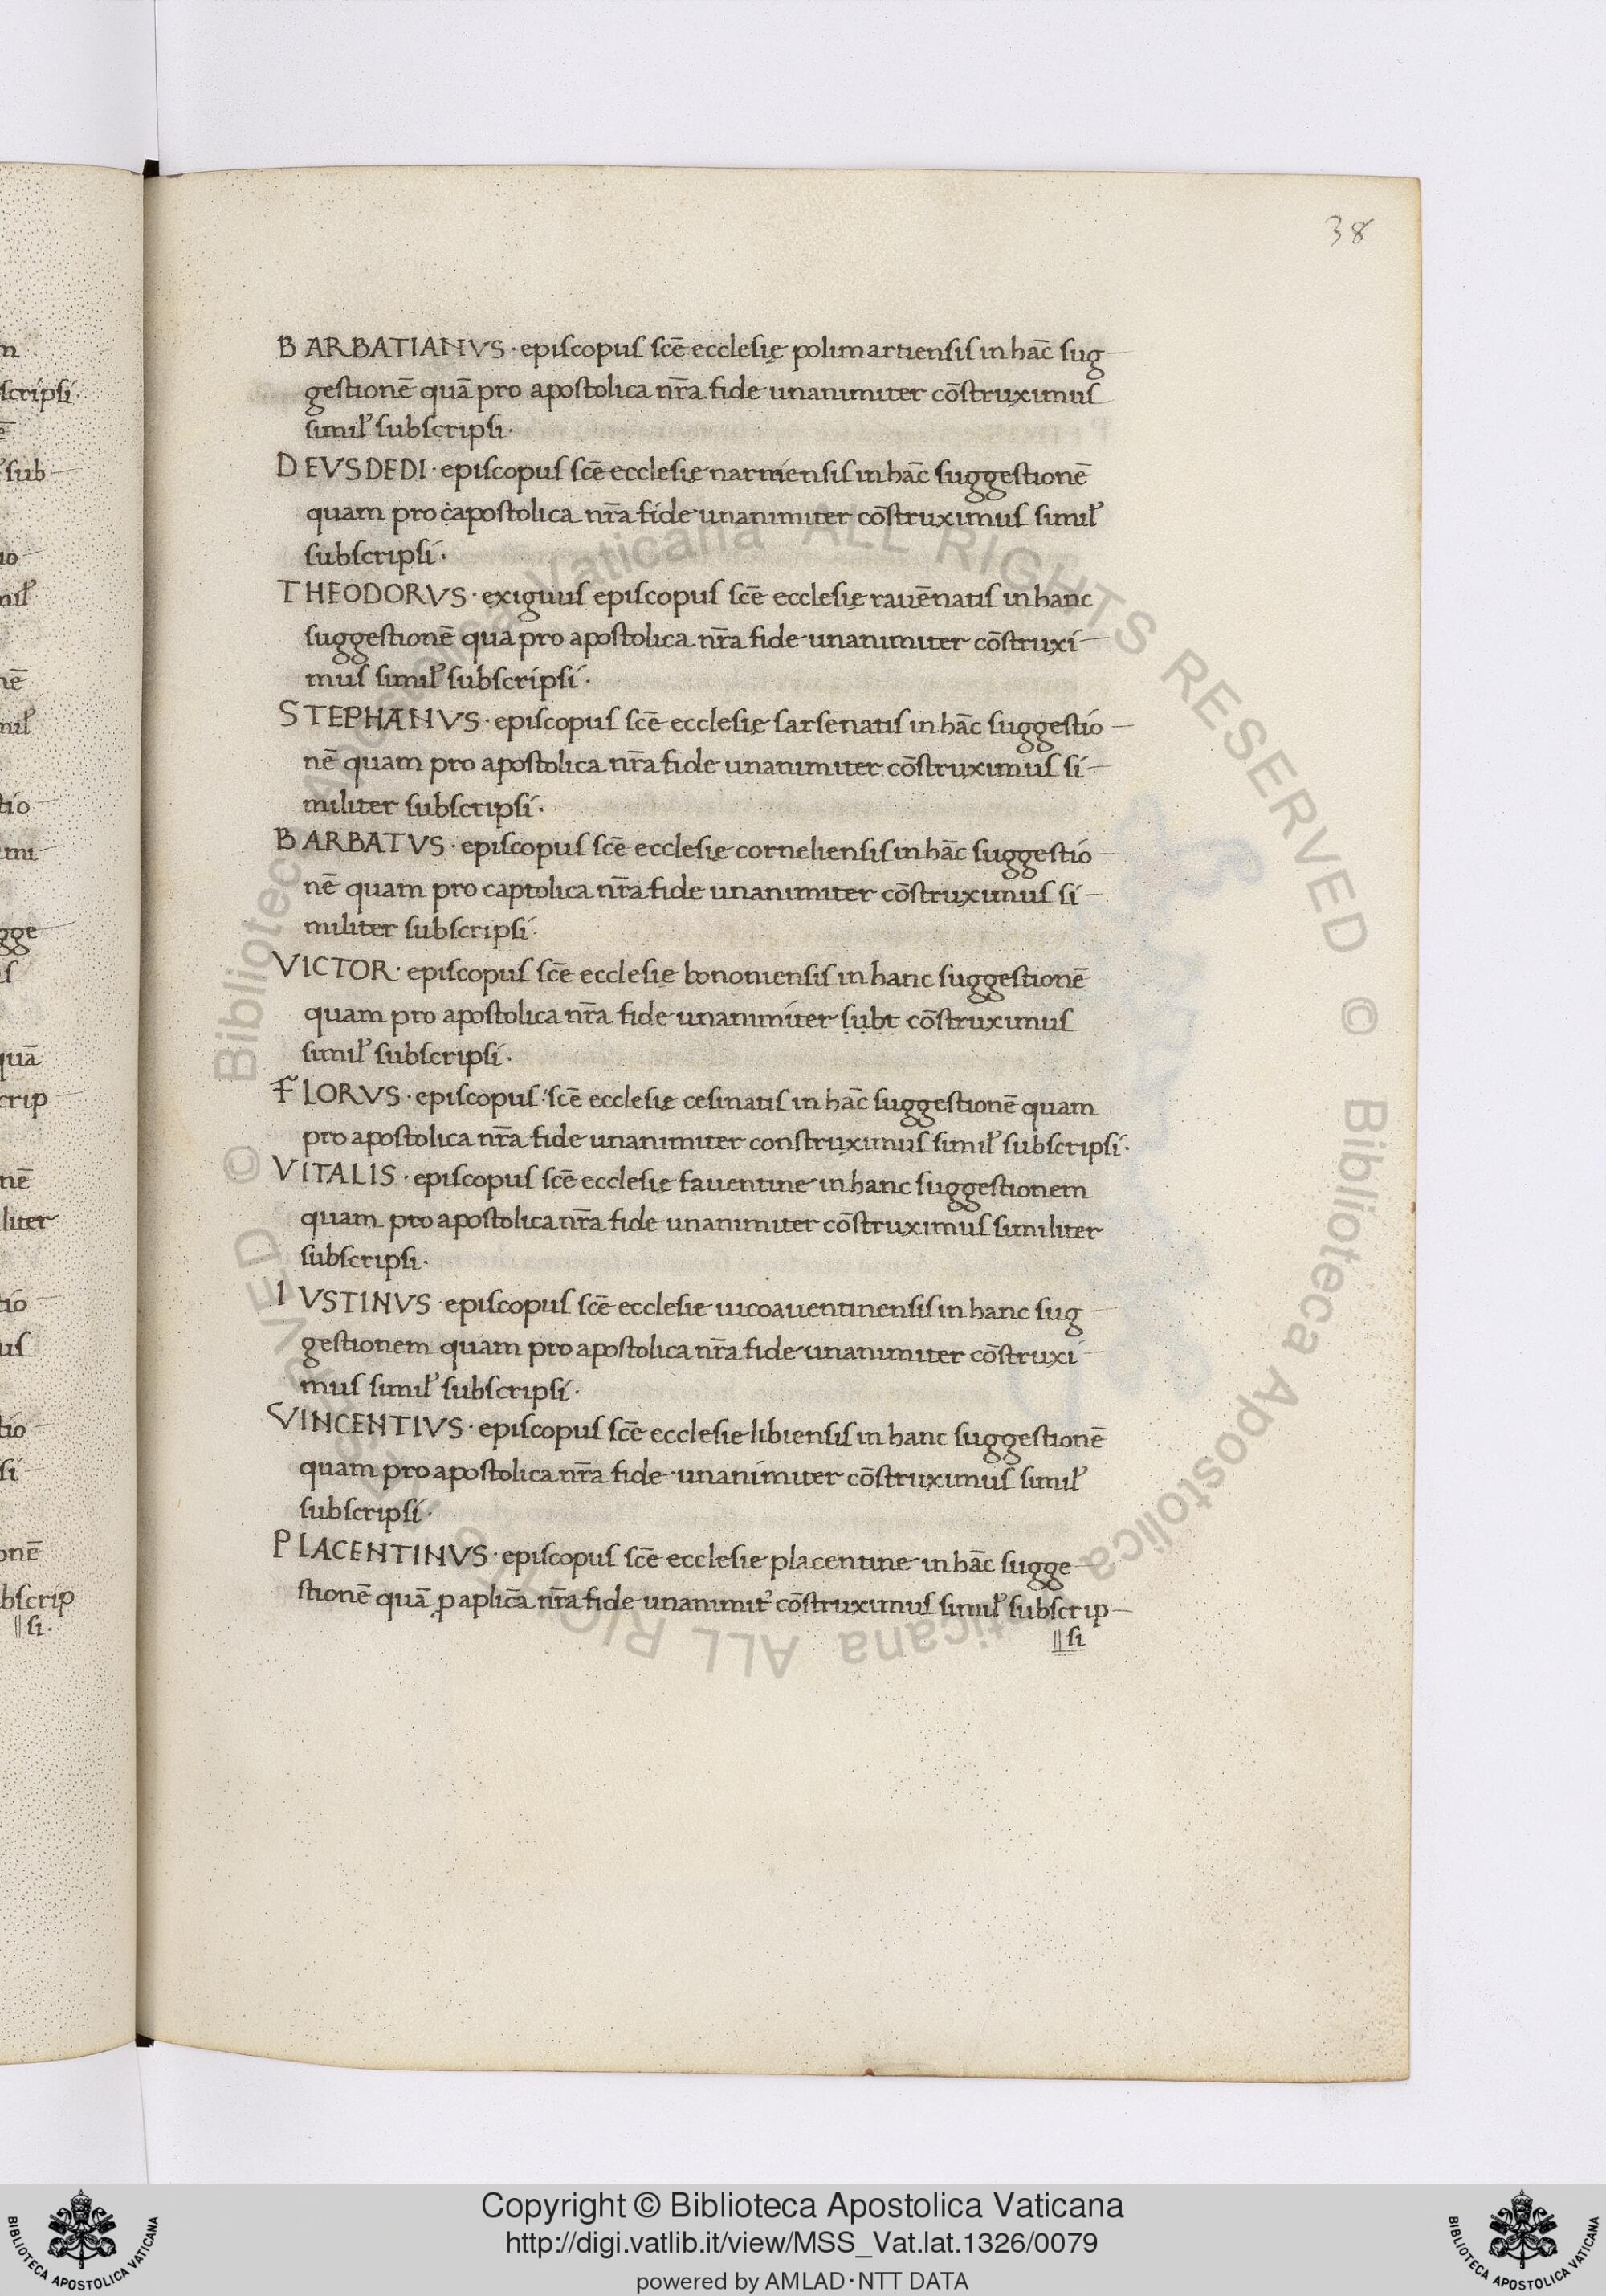 38
BARBATIANVS · episcopus scē ecclesię polimartiensis in hāc sug
gestionē quā pro apostolica nr̄a fide unanimiter cōstruximus
simil' subscripsi ·
DEVSDEDI · episcopus scē ecclesię narniensis in hāc suggestionē
quam pro c̣apostolica nr̄a fide unanimiter cōstruximus simil'
subscripsi ·
THEODORVS · exiguus episcopus scē ecclesię rauēnatis in hanc
suggestionē qua pro apostolica nr̄a fide unanimiter cōstruxi
mus simil' subscripsi ·
STEPHANVS · episcopus scē ecclesię sarsenatis in hāc suggestio
nē quam pro apostolica nr̄a fide unanimiter cōstruximus si
militer subscripsi ·
BARBATVS · episcopus scē ecclesię corneliensis in hāc suggestio
nē quam pro captolica nr̄a fide unanimiter cōstruximus si
militer subscripsi ·
VICTOR · episcopus scē ecclesię bononiensis in hanc suggestionē
quam pro apostolica nr̄a fide unanimiter ṣụḅṭ cōstruximus
simil' subscripsi ·
FLORVS · episcopus · scē ecclesię cesinatis in hāc suggestionē quam
pro apostolica nr̄a fide unanimiter construximus simil' subscripsi ·
VITALIS · episcopus scē ecclesię fauentine in hanc suggestionem
quam pro apostolica nr̄a fide unanimiter cōstruximus similiter
subscripsi ·
IVSTINVS · episcopus scē ecclesie uicoauentinensis in hanc sug
gestionem quam pro apostolica nr̄a fide unanimiter cōstruxi
mus simil' subscripsi ·
VINCENTIVS · episcopus scē ecclesie libiensis in hanc suggestionē
quam pro apostolica nr̄a fide unanimiter cōstruximus simil'
subscripsi ·
PLACENTINVS · episcopus scē ecclesie placentine in hāc sugge
stionē quā ꝓ aplicā nr̄a fide unanimit' cōstruximus simil' subscrip
||si
Copyright © Biblioteca Apostolica Vaticana
http://digi.vatlib.it/view/MSS_Vat.lat.1326/0079
powered by AMLAD·NTT DATA